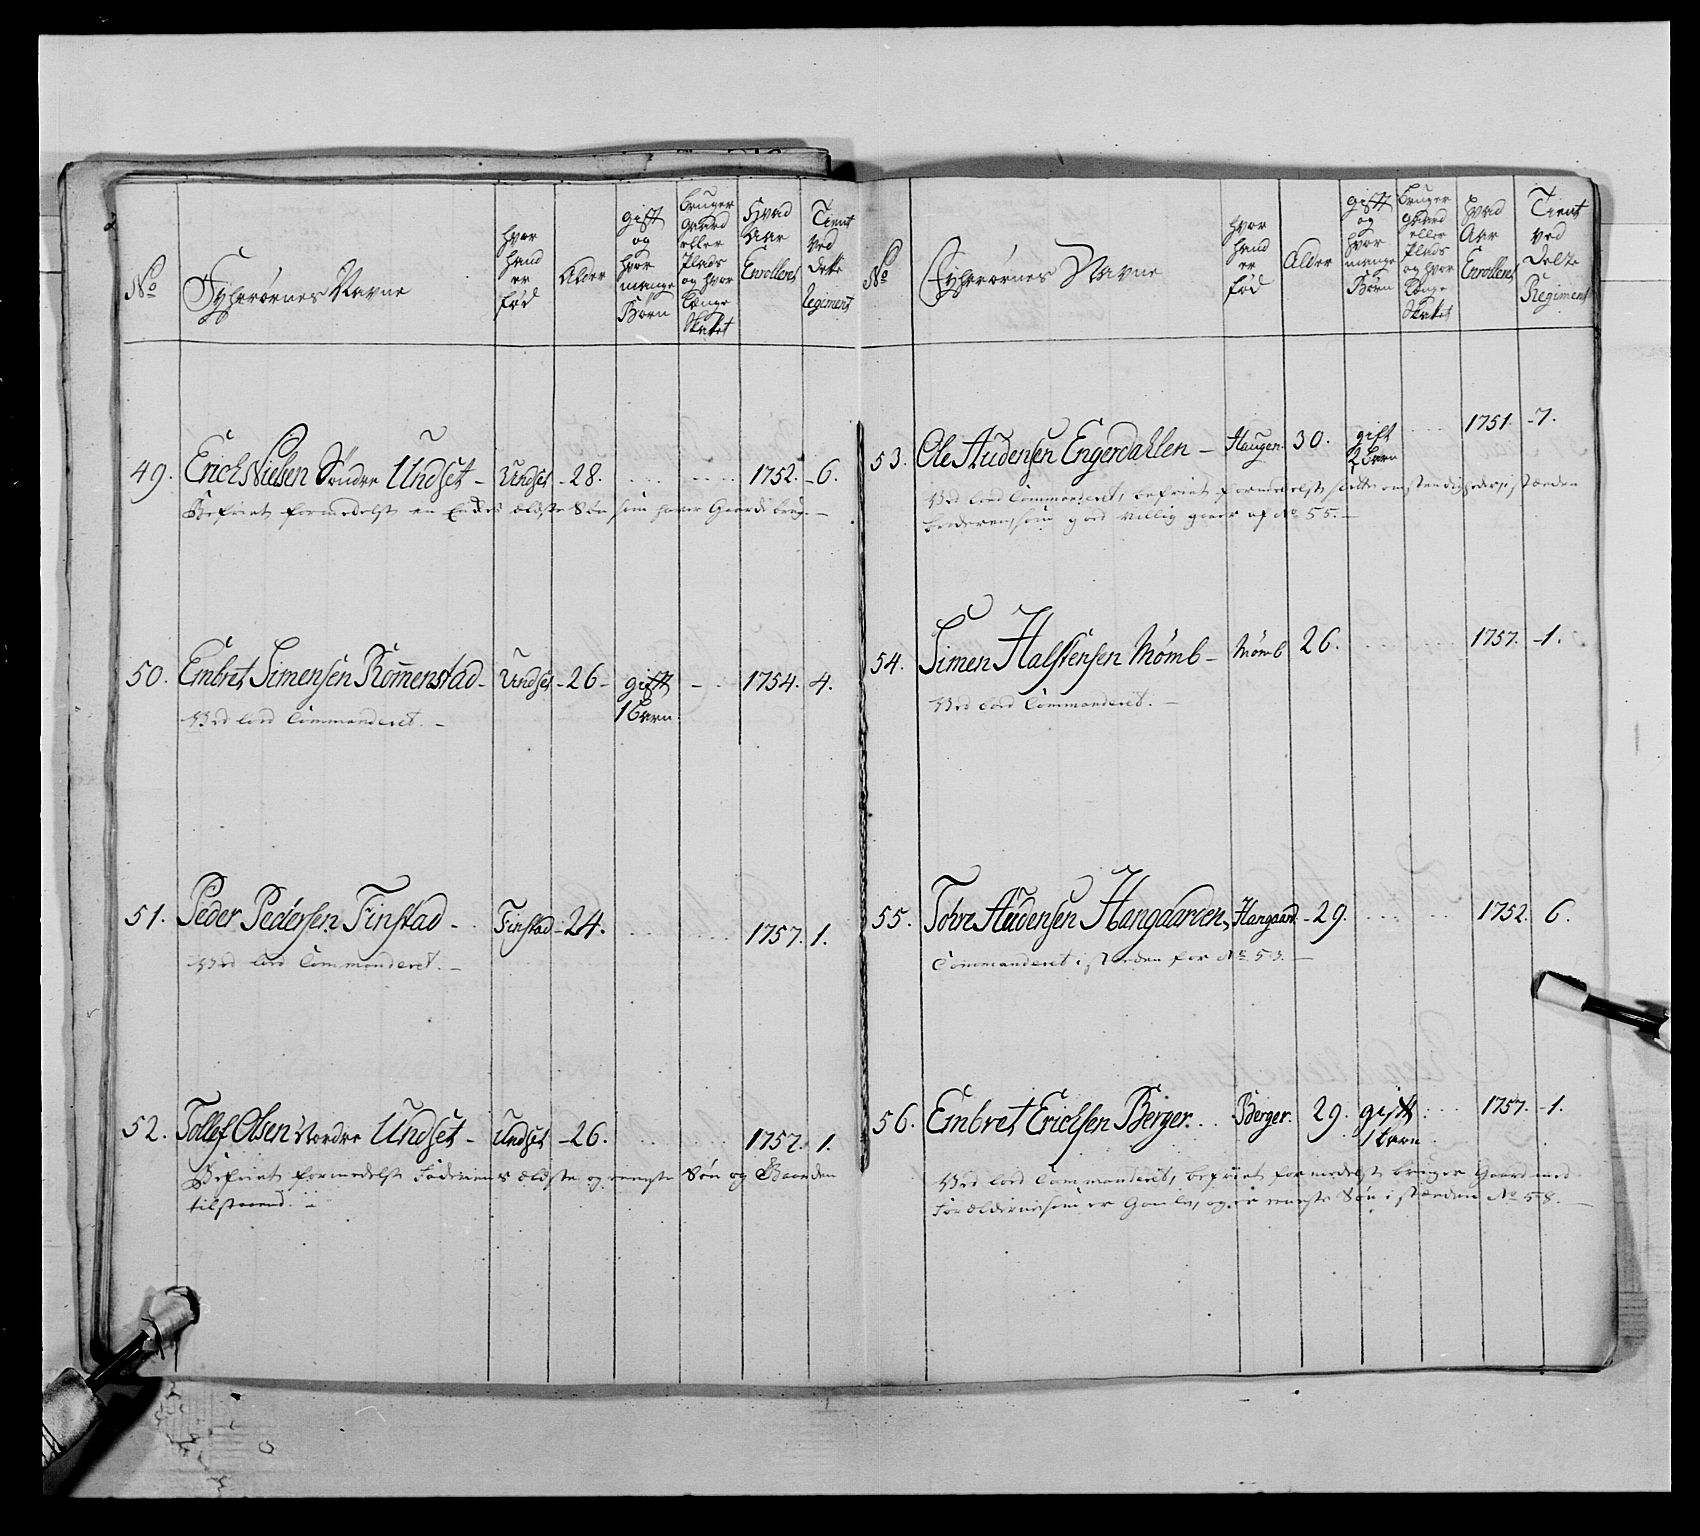 No
Fyhrerørnes Navne
hvor
hand
er
fød
Alder
gift
og
hvor
mange
Børn
bruger
Gaard
eller
Plads
og hvor
længe
Skatet
Hvad
Aar
Enrolleret
Tient
ved
dette
Regiment
49. Erich Nielsen Søndre Undset - Undset - 28. 1752. - 6.
Befriet formedelst en Enkes ældste Søn som haver Gaards brug. -
50. Embret Simensen Rommenstad - Undset - 26 - gift 1754. 4.
1 barn.
Ved lod Commanderet. -
51. Peder Pedersen Finstad - Finstad - 24. 1757. 1.
Ved lod Commanderet. -
52. Tollef Olsen Nordre Undset - Undset - 26. 1757. 1.
Befriet formedelst Faderens ældste og eeneste Søn og Gaarden
tilstaaend.
No
Fyhrerørnes Navne
hvor
hand
er
fød
Alder
gift
og
hvor
mange
Børn
bruger
Gaard
eller
Plads
og hvor
længe
Skatet
Hvad
Aar
Enrolleret
Tient
ved
dette
Regiment
53. Ole Audensen Engerdahlen - Haugen 30. gift 1751. - 7.
2 børn
Ved lod Commanderet, befriet formedelst slette omstendigheder, i stæden
broderen som god villig giver af No 55. -
54. Simen Halstensen Mømb - Mømb 26. 1757. - 1.
Ved lod Commanderet. -
55. Tore Audensen Hangaarden, Hangaard. - 29. 1752. 6.
Commanderet i stæden for No 53. -
56. Embret Erichsen Berger. Berger. 29. gift 1757. - 1.
1 barn
Ved lod Commanderet, befriet formedelst bruger Gaard med
Forældrene som er Gamle, og er eeneste Søn i stæden No 58. -